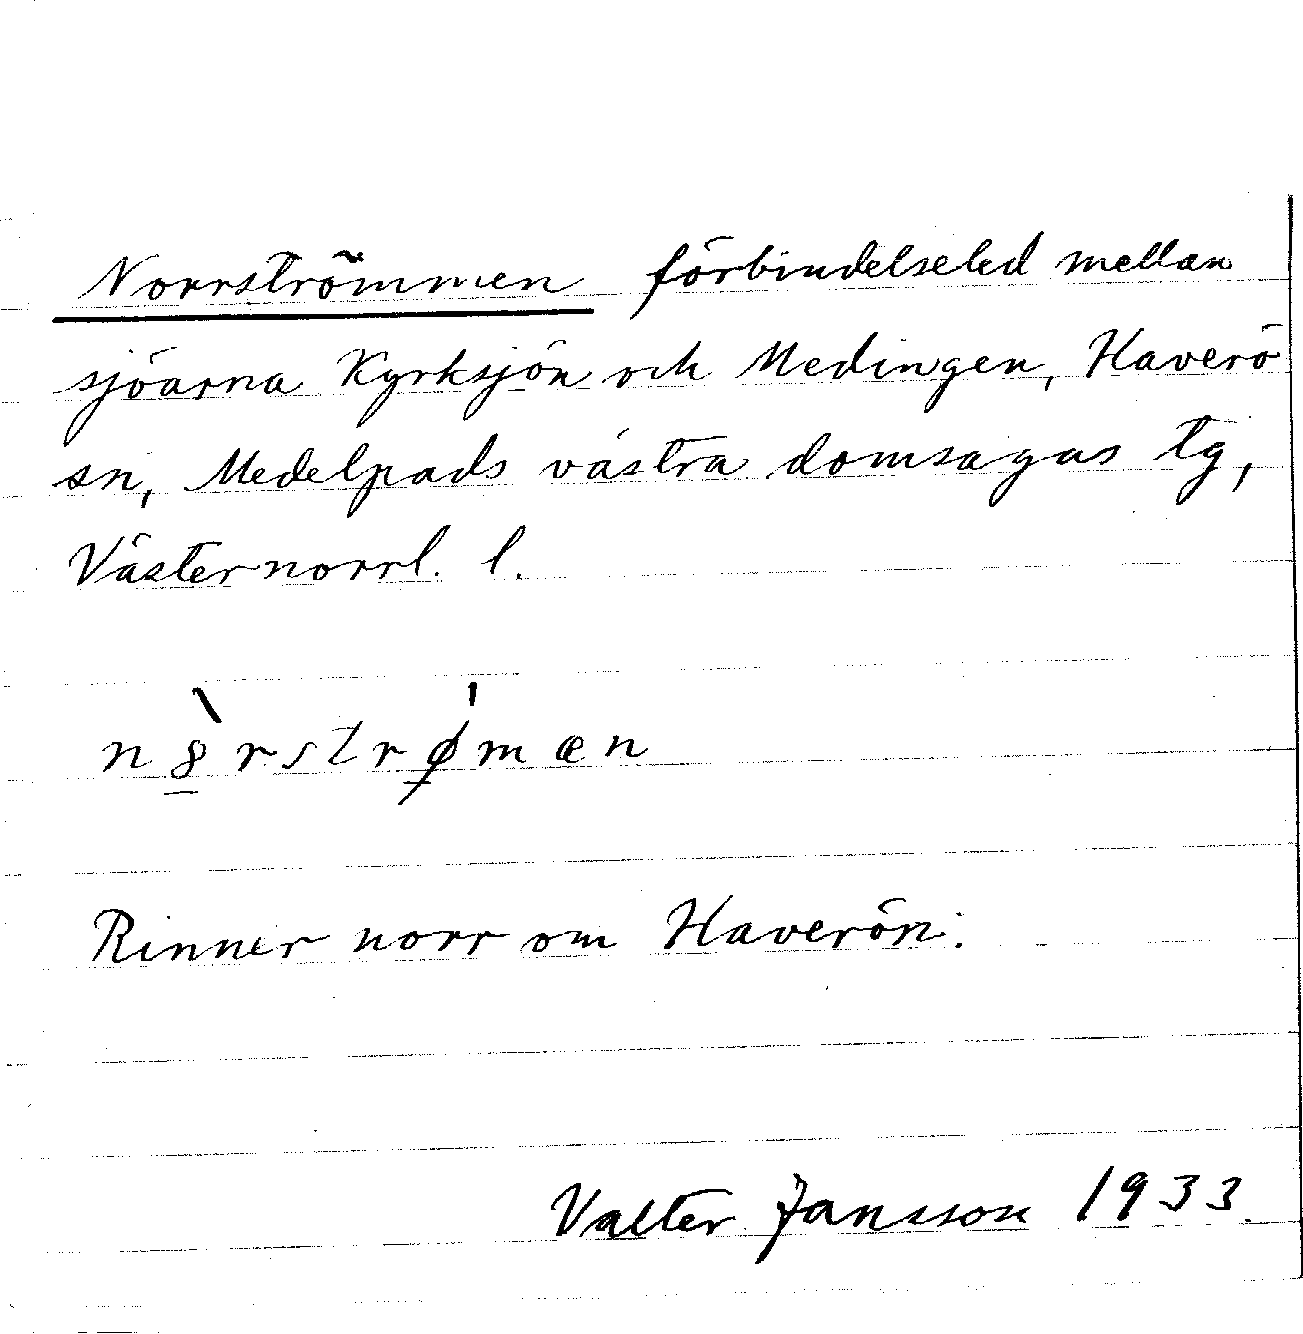 Norrströmmen förbindelseled mellan
sjöarna Kyrksjön och Medingen, Haverö
sn, Medelpads västra domsagas tg,
Västernorrl. l.
Rinner norr om Haverön.
Valter Jansson 1933.